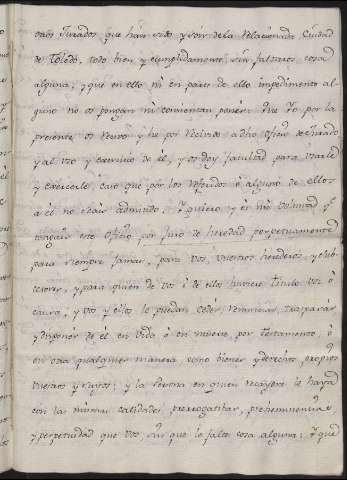 otros Jurados que han sido y son de la relacionada Ciudad
de Toledo, todo bien y cumplidamente, sin faltaros cosa
alguna; y que en ello ni en parte de ello impedimento al-
guno no os pongan ni consientan poner: Que Yo por la
presente os recivo y he por recivido a dho oficio de Jurado
y al uso y exercicio de él, y os doy facultad para usarle
y exercerle, caso que por los referidos ó alguno de ellos
a él no seais admitido. Y quiero, y es mi voluntad q.e
tengais este oficio por Juro de heredad perpetuamente
para siempre jamas, para vos, vuestros herederos, y sub-
cesores, y para quien de vos ó de ellos huviere titulo, voz ó
causa, y vos y ellos le puedan ceder, renunciar, traspasar
y disponer de él en vida ó en muerte, por testamento, ó
en otra qualquier manera, como bienes y derechos propios
vuestros y suyos; y la Persona en quien recayere le haya
con las mismas calidades, prerrogativas, preheminencias
y perpetuidad que vos, sin que le falte cosa alguna; Y que